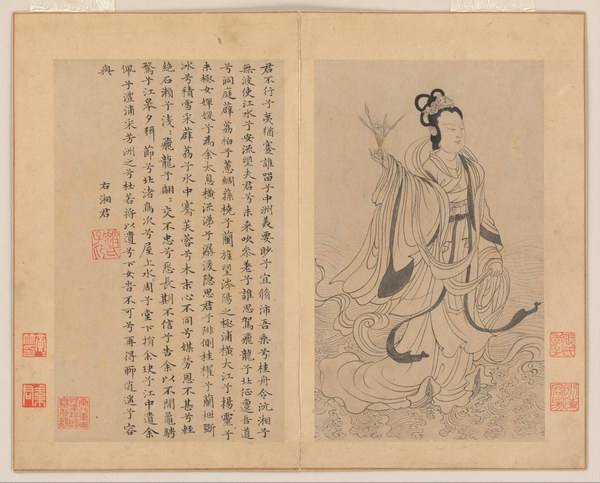 君不行兮夷猶蹇誰留兮中洲美要眇兮宜脩沛吾乘兮桂舟令沅湘兮
無波使江水兮安流望夫君兮未來吹參差兮誰思駕飛龍兮北征邅吾道
兮洞庭薜荔柏兮蕙綢蓀橈兮蘭旌望涔陽之極浦橫大江兮揚靈兮
未極女嬋媛兮為余太息橫流涕兮潺湲隱思君兮陫側桂櫂兮蘭枻斲
冰兮積雪采薜荔兮水中搴芙蓉兮木末心不同兮媒勞恩不甚兮輕
絕石瀨兮淺〻飛龍兮翩〻交不忠兮怨長期不信兮告余以不閒鼂騁
騖兮江皋夕弭節兮北渚鳥次兮屋上水周兮堂下捐余玦兮江中遺余
佩兮澧浦采芳洲之兮杜若將以遺兮下女旹不可兮再得聊逍遙兮容
與
右湘君